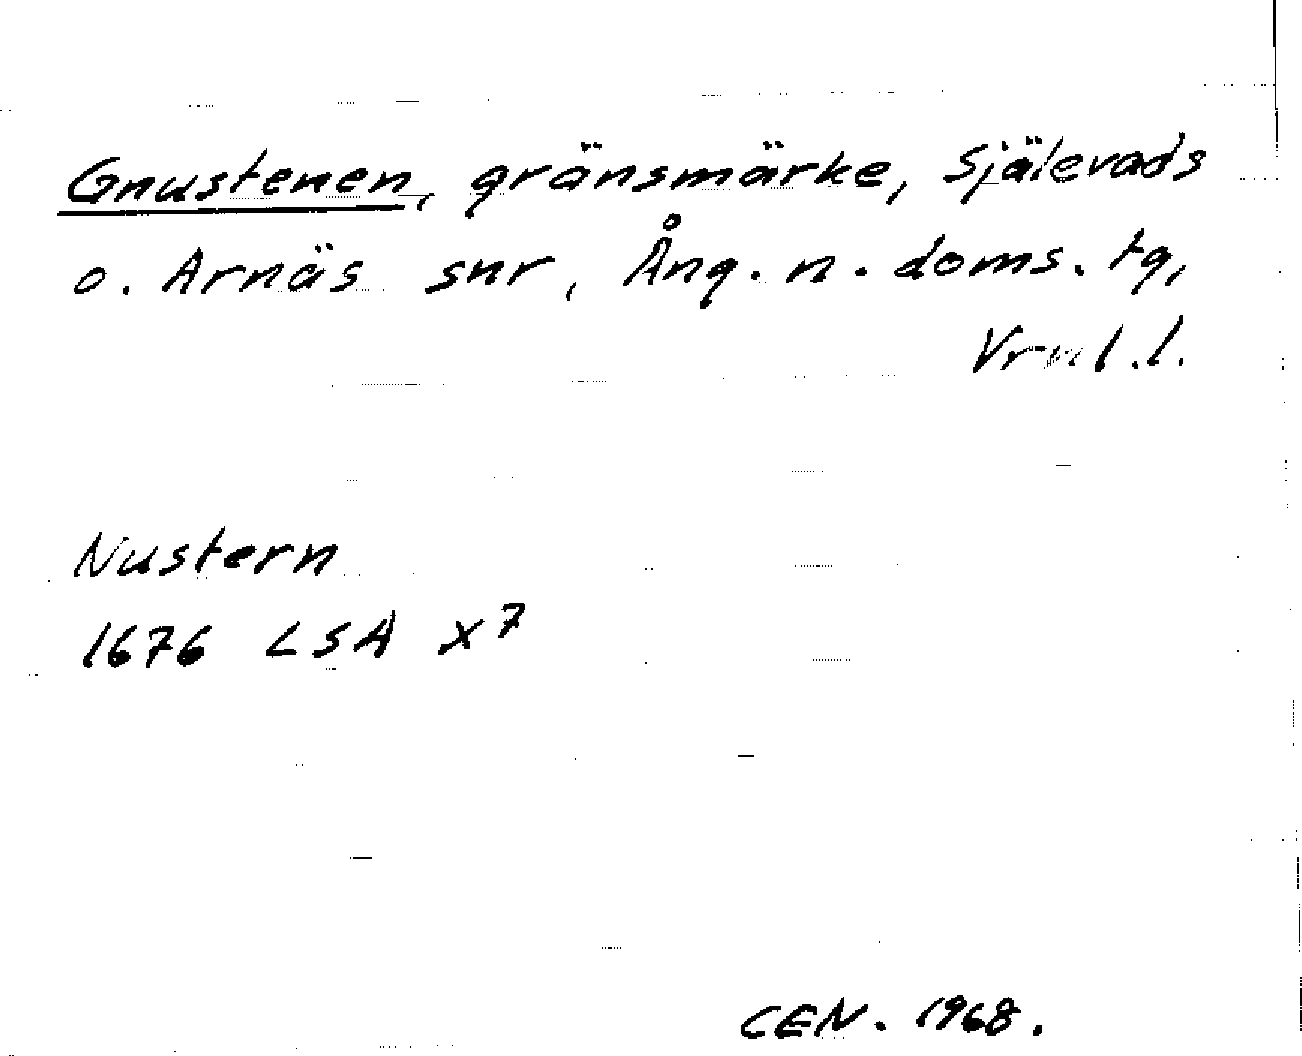 Gnustenen, gränsmärke, Själevads
o. Arnäs snr, Ång. n. doms. tg,
Vrnl. l.
Nustern
1676 LSA X7
CEN. 1968.